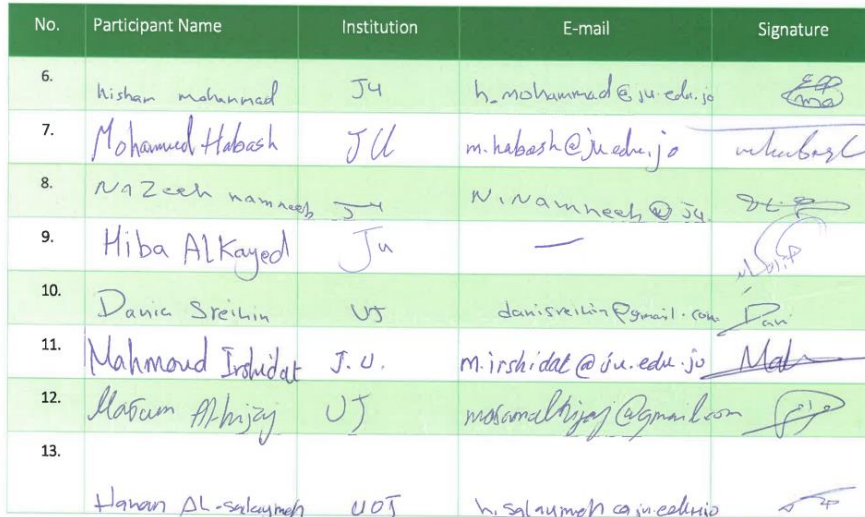 No. Participant Name Institution E-mail Signature
6. hisham mohammad JU h.mohammad@ju.edu.jo
7. Mohammed Habash JU m.habash@ju.edu.jo
8. NaZeeh namneeh JU N.Namneeh@JU.
9. Hiba AlKayed Ju —
10. Dania Sreihin UJ danisreihin@gmail.com Dani
11. Mahmoud Irshidat J.U. m.irshidat@ju.edu.jo Mah
12. UJ
13. Hanan AL-salaymeh UOJ h.salaymeh@ju.edu.jo